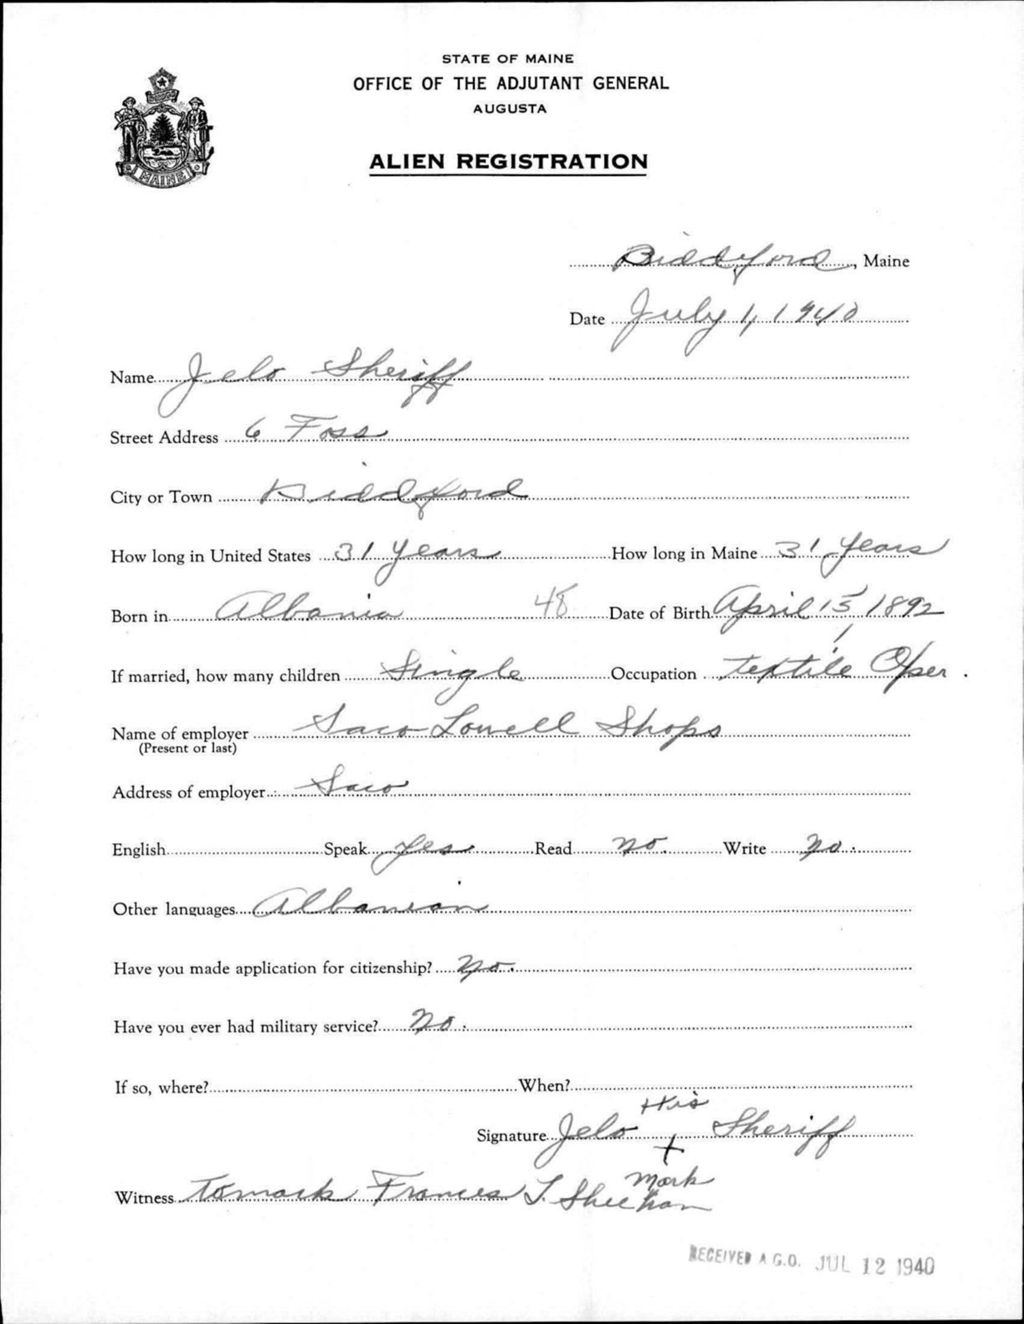 STATE OF MAINE
OFFICE OF THE ADJUTANT GENERAL
AUGUSTA
MAINE
ALIEN REGISTRATION
Biddeford, Maine
Date July 1, 1940
Name Jelo Sheriff
Street Address 6 Foss
City or Town Biddeford
How long in United States 31 years How long in Maine 31 years
Born in Albania 48 Date of Birth April 15, 1892
If married, how many children Single Occupation textile Oper.
Name of employer Saco-Lowell Shops
(Present or last)
Address of employer Saco
English Speak yes Read no. Write no.
Other languages Albanian
Have you made application for citizenship? No.
Have you ever had military service? No.
If so, where? When?
His
Signature Jelo + Sheriff
Mark
Witness to mark Frances T. Sheehan
RECEIVED A.G.O. JUL 12 1940